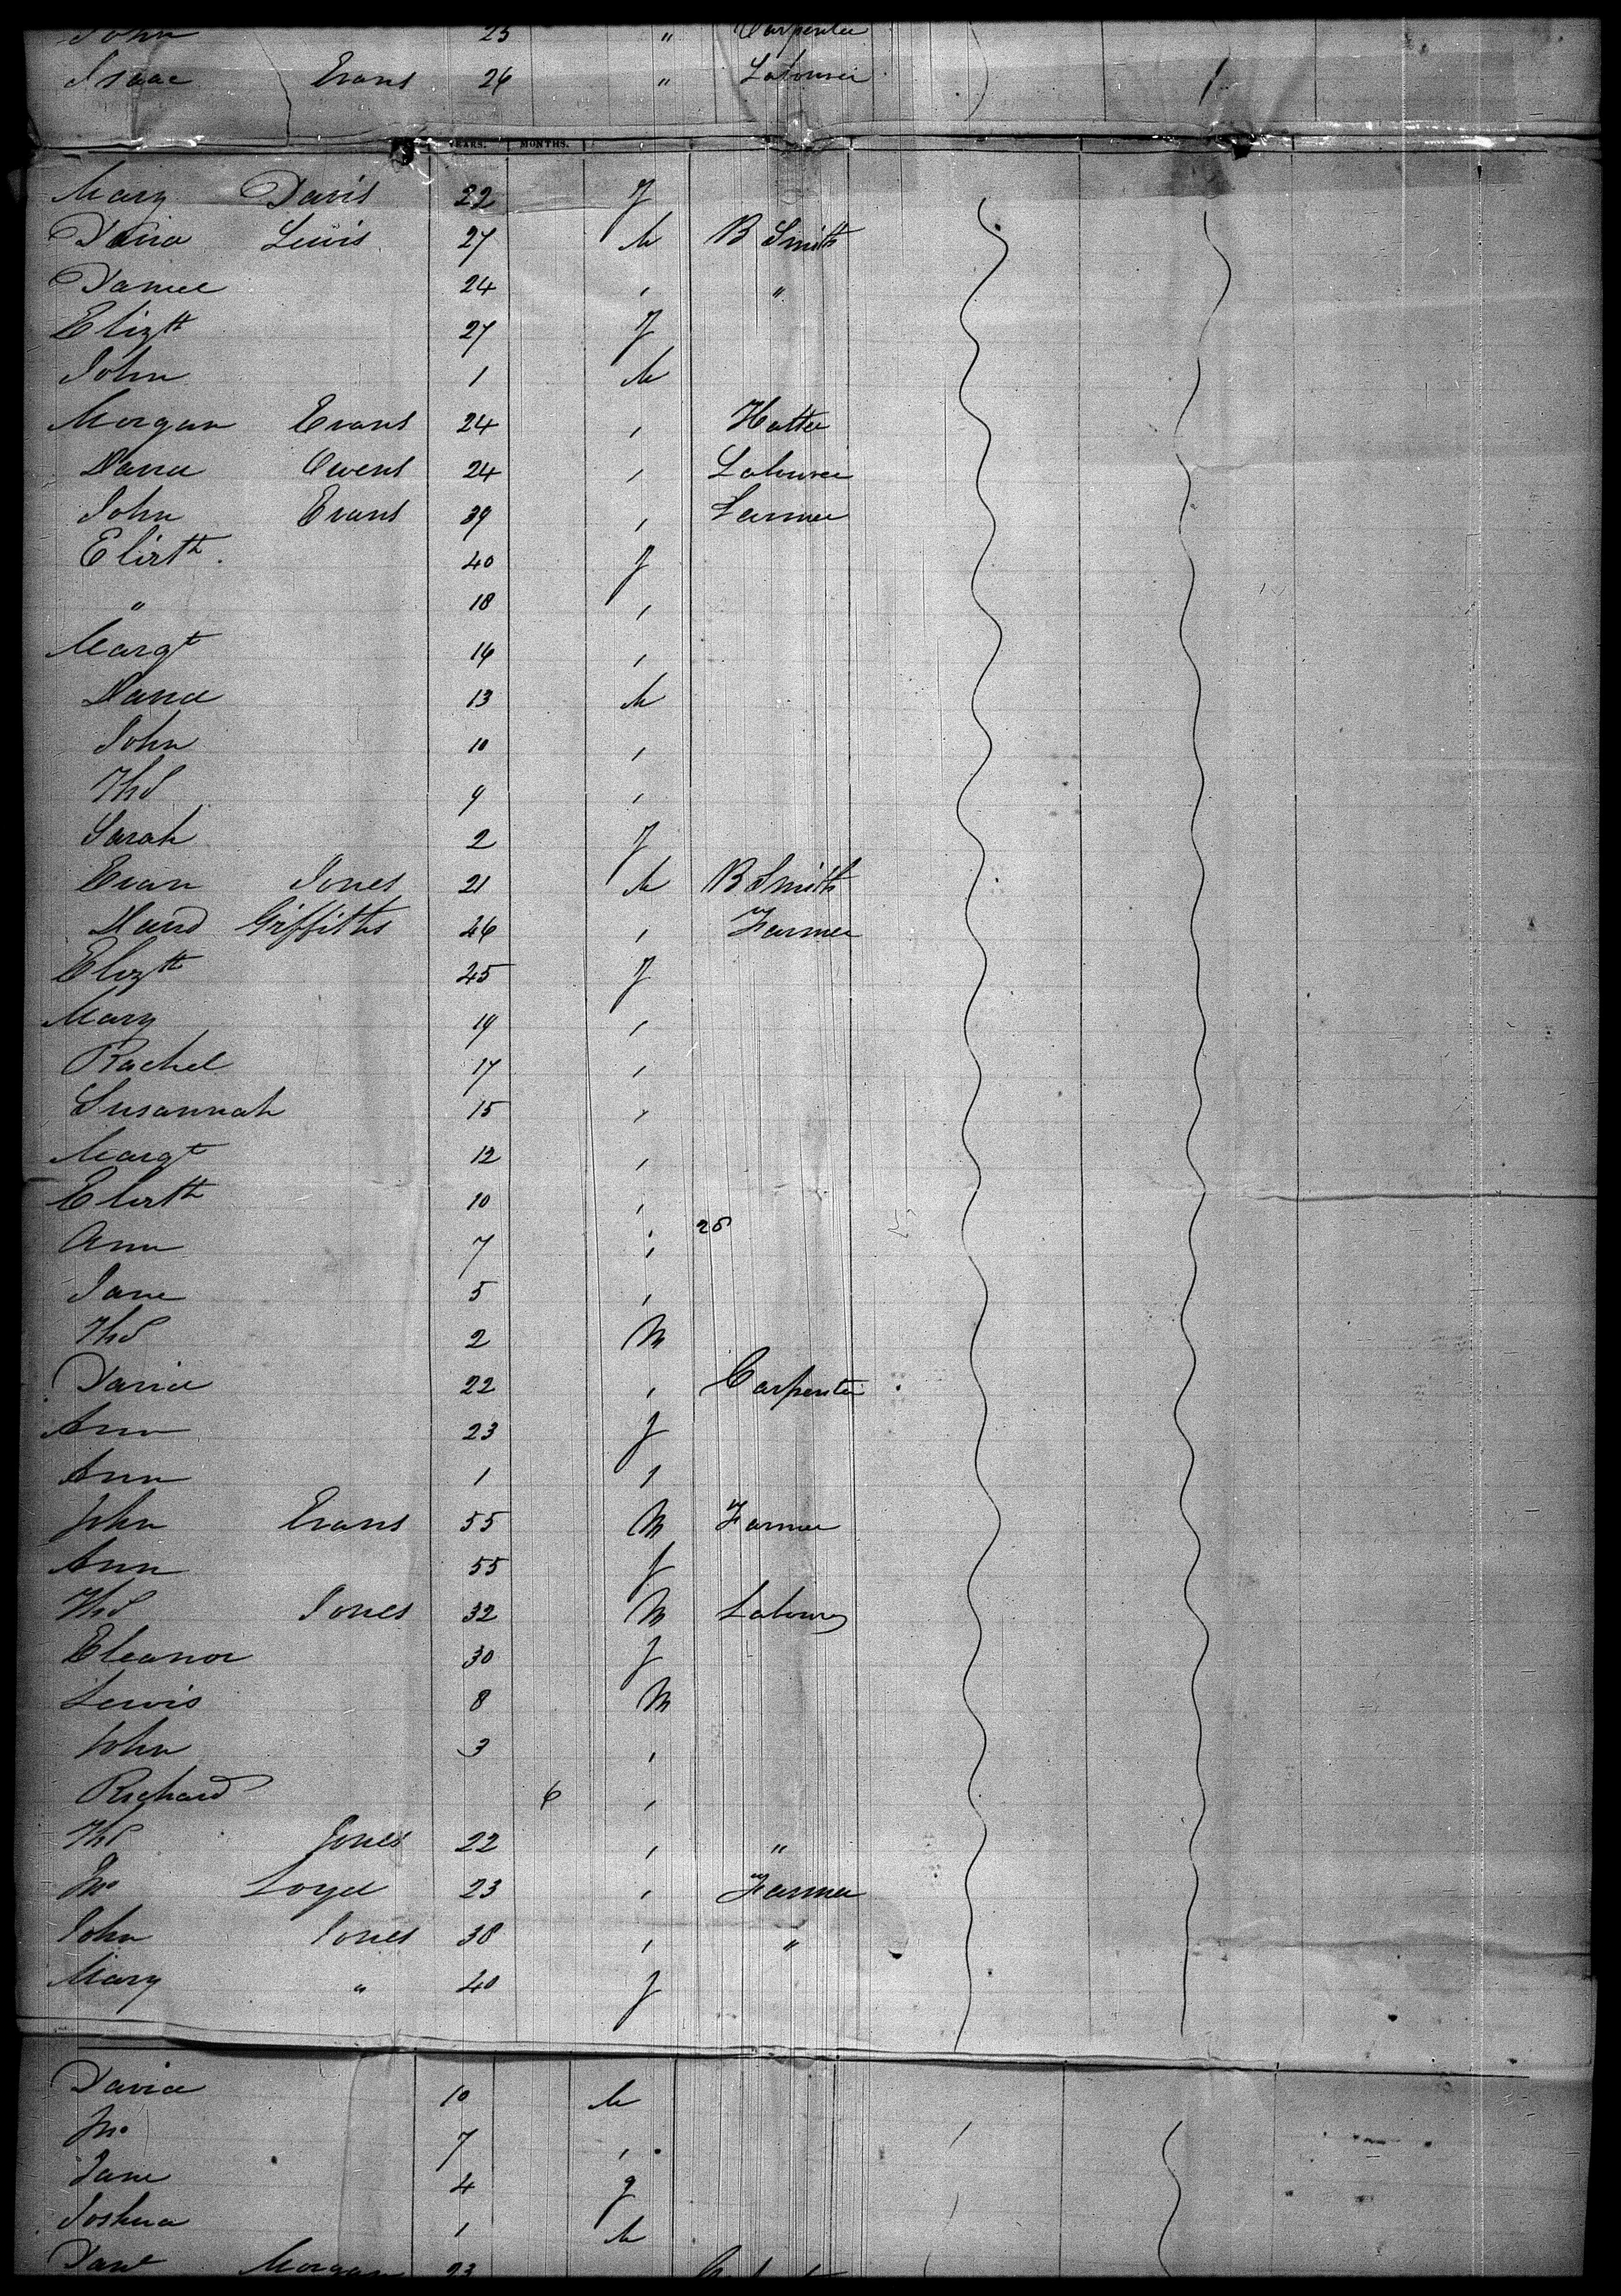 John 25 " Carpenter
Isaac Evans 26 " Labourer
YEARS. MONTHS.
Mary Davis 22 f
David Lewis 27 M B Smith
Daniel 24 , "
Elizth 27 f
John 1 M
Morgan Evans 24 , Hatter
David Owens 24 , Labourer
John Evans 39 , Farmer
Elizth 40 f
" 18 ,
Margt 16 ,
David 13 M
John 10 ,
Thos 9 ,
Sarah 2 f
Evan Jones 21 M B Smith
David Griffiths 46 , Farmer
Elizth 45 f
Mary 19 ,
Rachel 17 ,
Susannah 15 ,
Margt 12 ,
Elizth 10 ,
Ann 7 ,
Jane 5 ,
Thos 2 M
David 22 , Carpenter
Ann 23 f
Ann 1 f
John Evans 55 M Farmer
Ann 55 f
Thos Jones 32 M Labourer
Eleanor 30 f
Lewis 8 M
John 3 ,
Richard 6 ,
Thos Jones 22 , "
Jno Loyd 23 , Farmer
John Jones 38 , "
Mary " 40 f
David 10 M
Jno 7 ,
Jane 4 f
Joshua 1 M
Davd Morgan 23